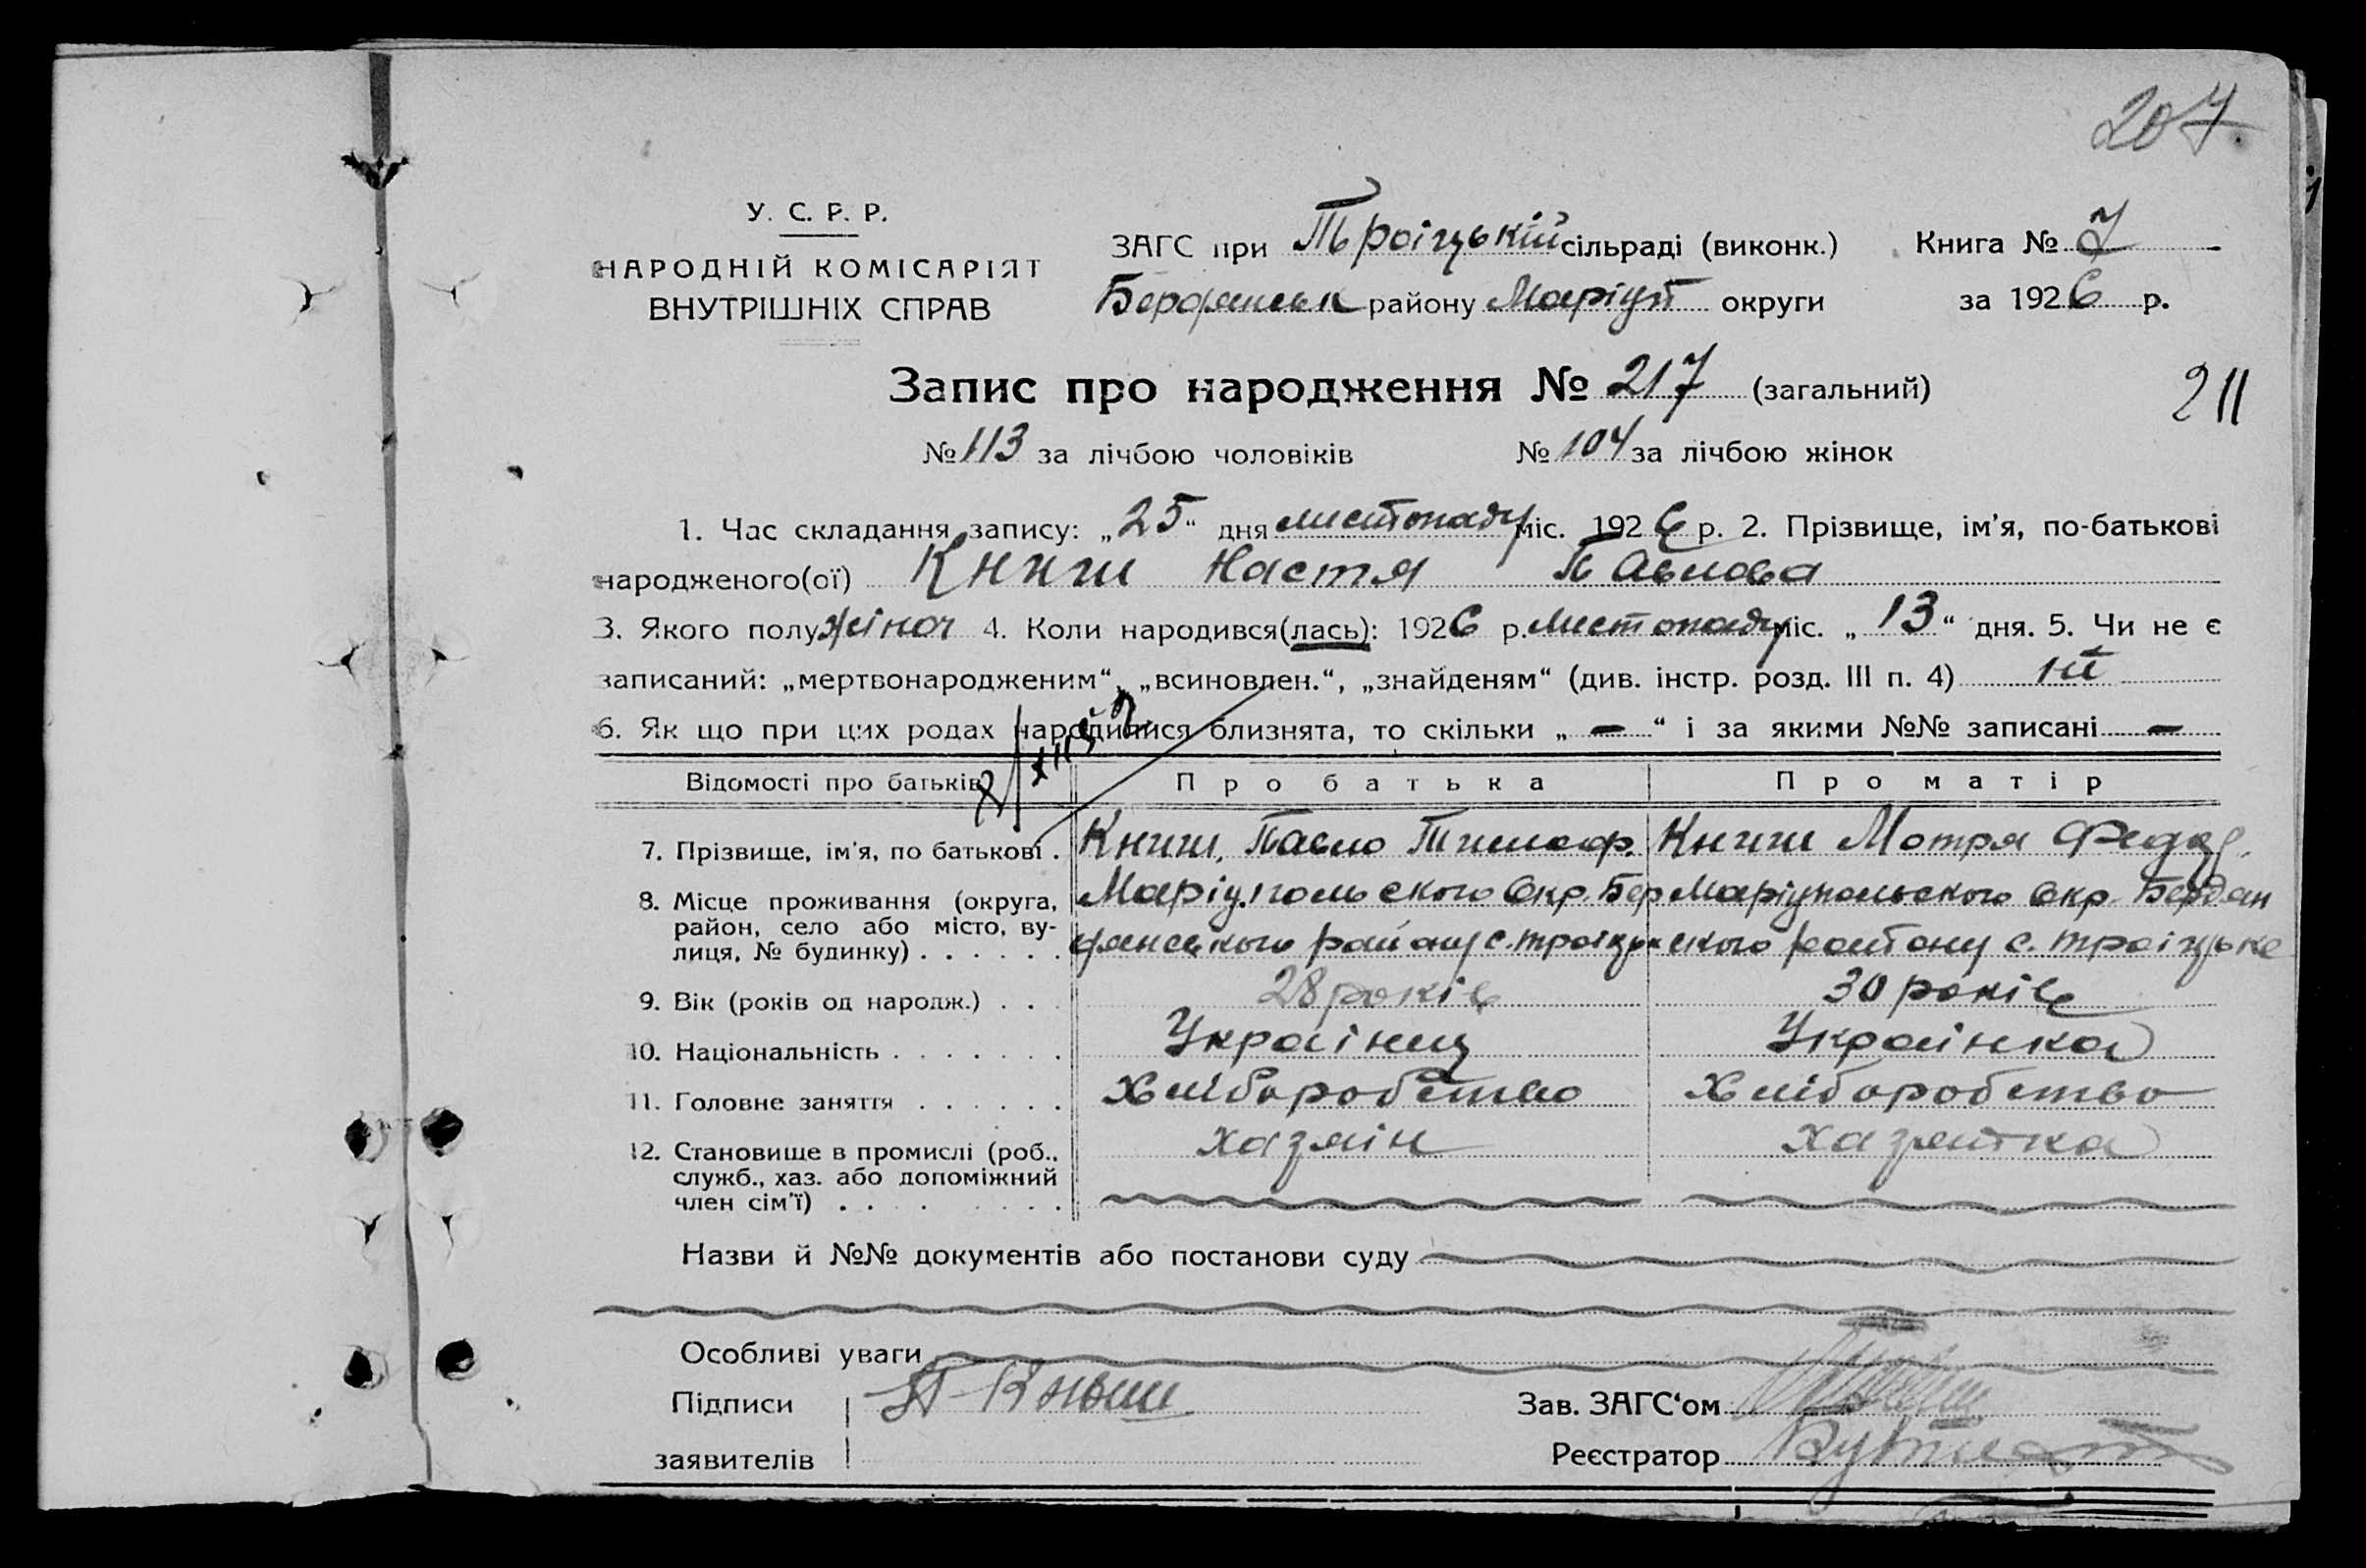 207.
У. С. Р. Р.
НАРОДНІЙ КОМІСАРІЯТ
ВНУТРІШНІХ СПРАВ
ЗАГС при Троіцькій сільраді (виконк.) Книга № 2
Бердянськ району Маріуп округи за 1926 р.
Запис про народження № 217 (загальний)
211
№ 113 за лічбою чоловіків № 104 за лічбою жінок
1. Час складання запису: „25“ дня листопаду міс. 1926 р. 2. Прізвище, ім'я, по-батькові
народженого(ої) Книш Настя Павлова
3. Якого полу жіноч 4. Коли народився(лась): 1926 р. листопаду міс. „13“ дня. 5. Чи не є
записаний: „мертвонародженим“, „всиновлен.“, „знайденям“ (див. інстр. розд. III п. 4) ні
6. Як що при цих родах народилися близнята, то скільки „—“ і за якими №№ записані —
Відомості про батьків Про батька Про матір
7. Прізвище, ім'я, по батькові . Книш, Павло Тимоф. Книш Мотря Федор.
8. Місце проживання (округа, Маріупольского Окр. Бер Маріупольского Окр. Бердян
район, село або місто, ву- дянського району с. Троіцьк ского району с. Троіцьке
лиця, № будинку) . . . . . .
9. Вік (років од народж.) . . . 28 років 30 років
10. Національність . . . . . . . Украінец Украінка
11. Головне заняття . . . . . . Хліборобство Хліборобство
12. Становище в промислі (роб., хазяін хазяйка
служб., хаз. або допоміжний
член сім'ї) . . . . . . . .
Назви й №№ документів або постанови суду
Особливі уваги
Підписи П Кныш Зав. ЗАГС‘ом
заявителів Реєстратор